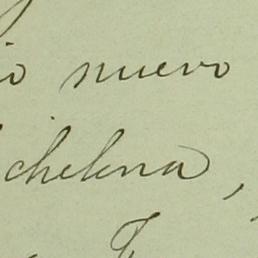 io nuevo
chelena,